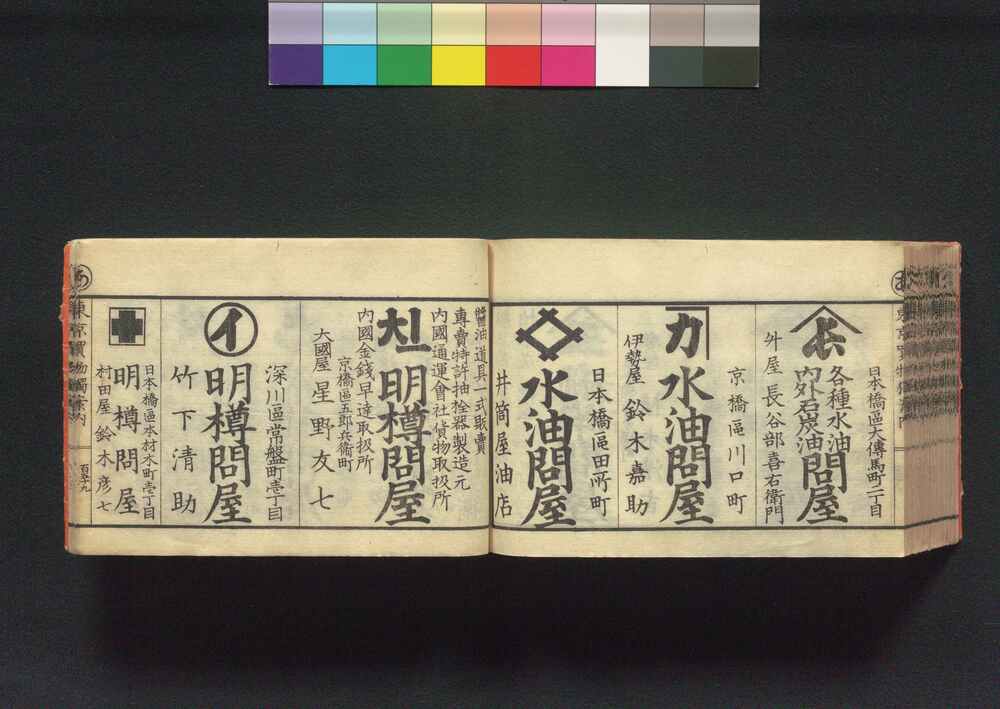 日本橋區大傳馬町二丁目
各種水油
内外石炭油
問屋
外屋 長谷部喜右衛門
京橋區川口町
カ
水油問屋
伊勢屋 鈴木嘉助
日本橋區田所町
水油問屋
井筒屋油店
醬油道具一式販賣
專賣特許抽栓器製造元
内國通運會社貨物取扱所
明樽問屋
内國金錢早達取扱所
京橋區五郎兵衛町
大國屋 星野友七
深川區常盤町壱丁目
イ
明樽問屋
竹下清助
日本橋區本材木町壱丁目
明樽問屋
村田屋 鈴木彦七
東京買物獨案内